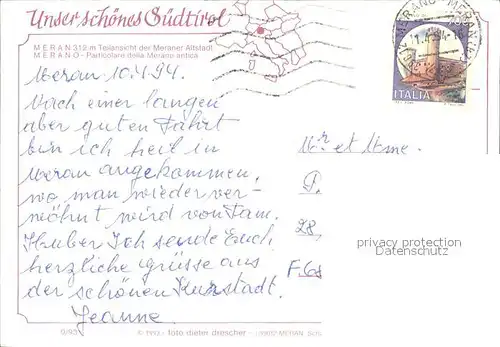 Unser schönes Südtirol
MERAN 312 m Teilansicht der Meraner Altstadt
MERANO - Particolare della Merano antica
MERANO MERAN
ITALIA
Meran 10.4.94.
Nach einer langen
aber guten Fahrt
bin ich heil in
Meran angekommen,
wo man wieder ver-
wöhnt wird von Fam.
Huber Ich sende Euch
herzliche Grüsse aus
der schönen Kurstadt.
Jeanne
Mr et Mme.
P.
28,
F-68
privacy protection
Datenschutz
© foto dieter drescher - MERAN